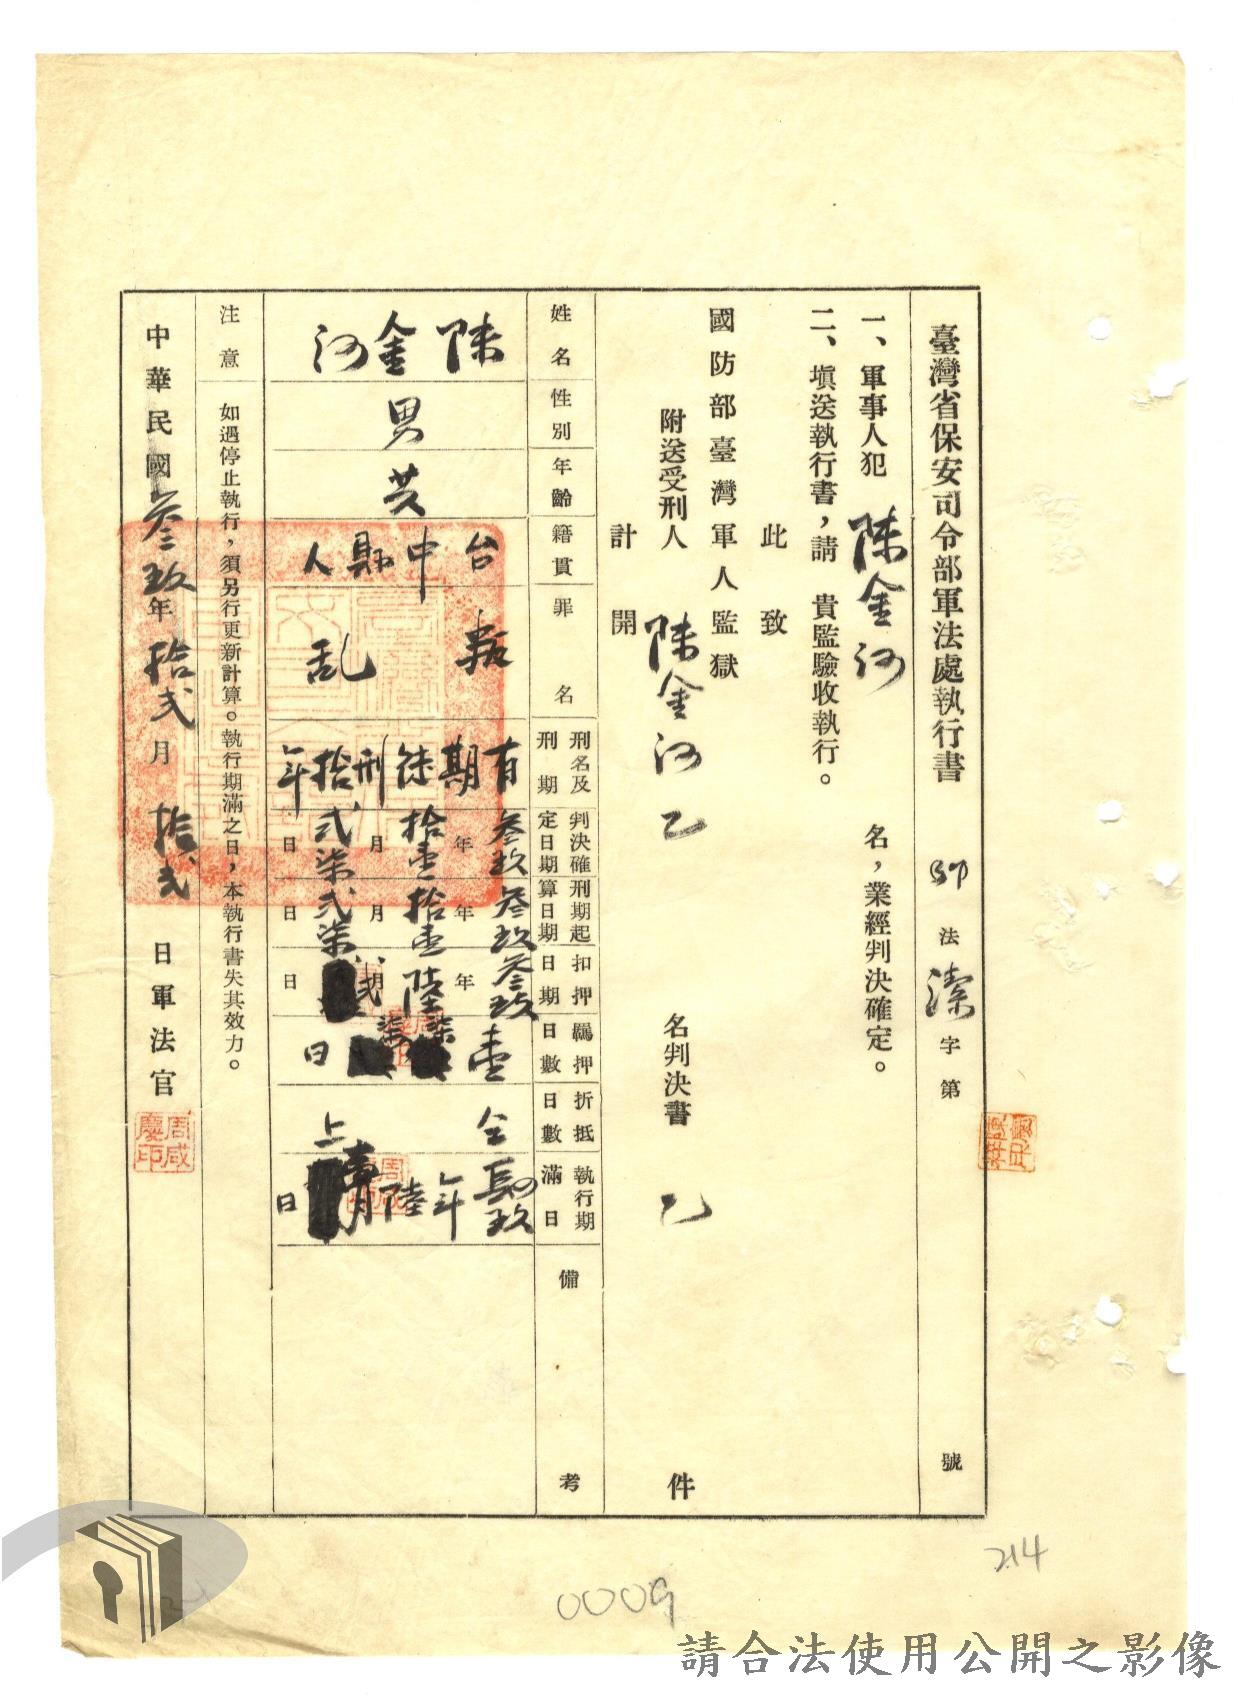 臺灣省保安司令部軍法處執行書 法潔字第 號
一、軍事人犯 陳金河 名，業經判決確定。
二、塡送執行書，請 貴監驗收執行。
此致
國防部臺灣軍人監獄
附送受刑人 陳金河乙 名判決書 乙 件
計開
姓名 陳金河
性別 男
年齡
籍貫 台中縣人
罪名 叛乱
刑名及刑期 有期徒刑拾年
判決確定日期 叁玖年拾壹月弍柒日
刑期起算日期 叁玖年拾壹月弍柒日
扣押日期 叁玖年陸月弍日
羈押日數 壹柒柒日
折抵日數 仝上
執行期滿日 肆玖年陸月壹日
備考
注意 如遇停止執行，須另行更新計算。執行期滿之日，本執行書失其效力。
中華民國叁玖年拾弍月拾弍日軍法官
周咸慶印
0009
214
請合法使用公開之影像